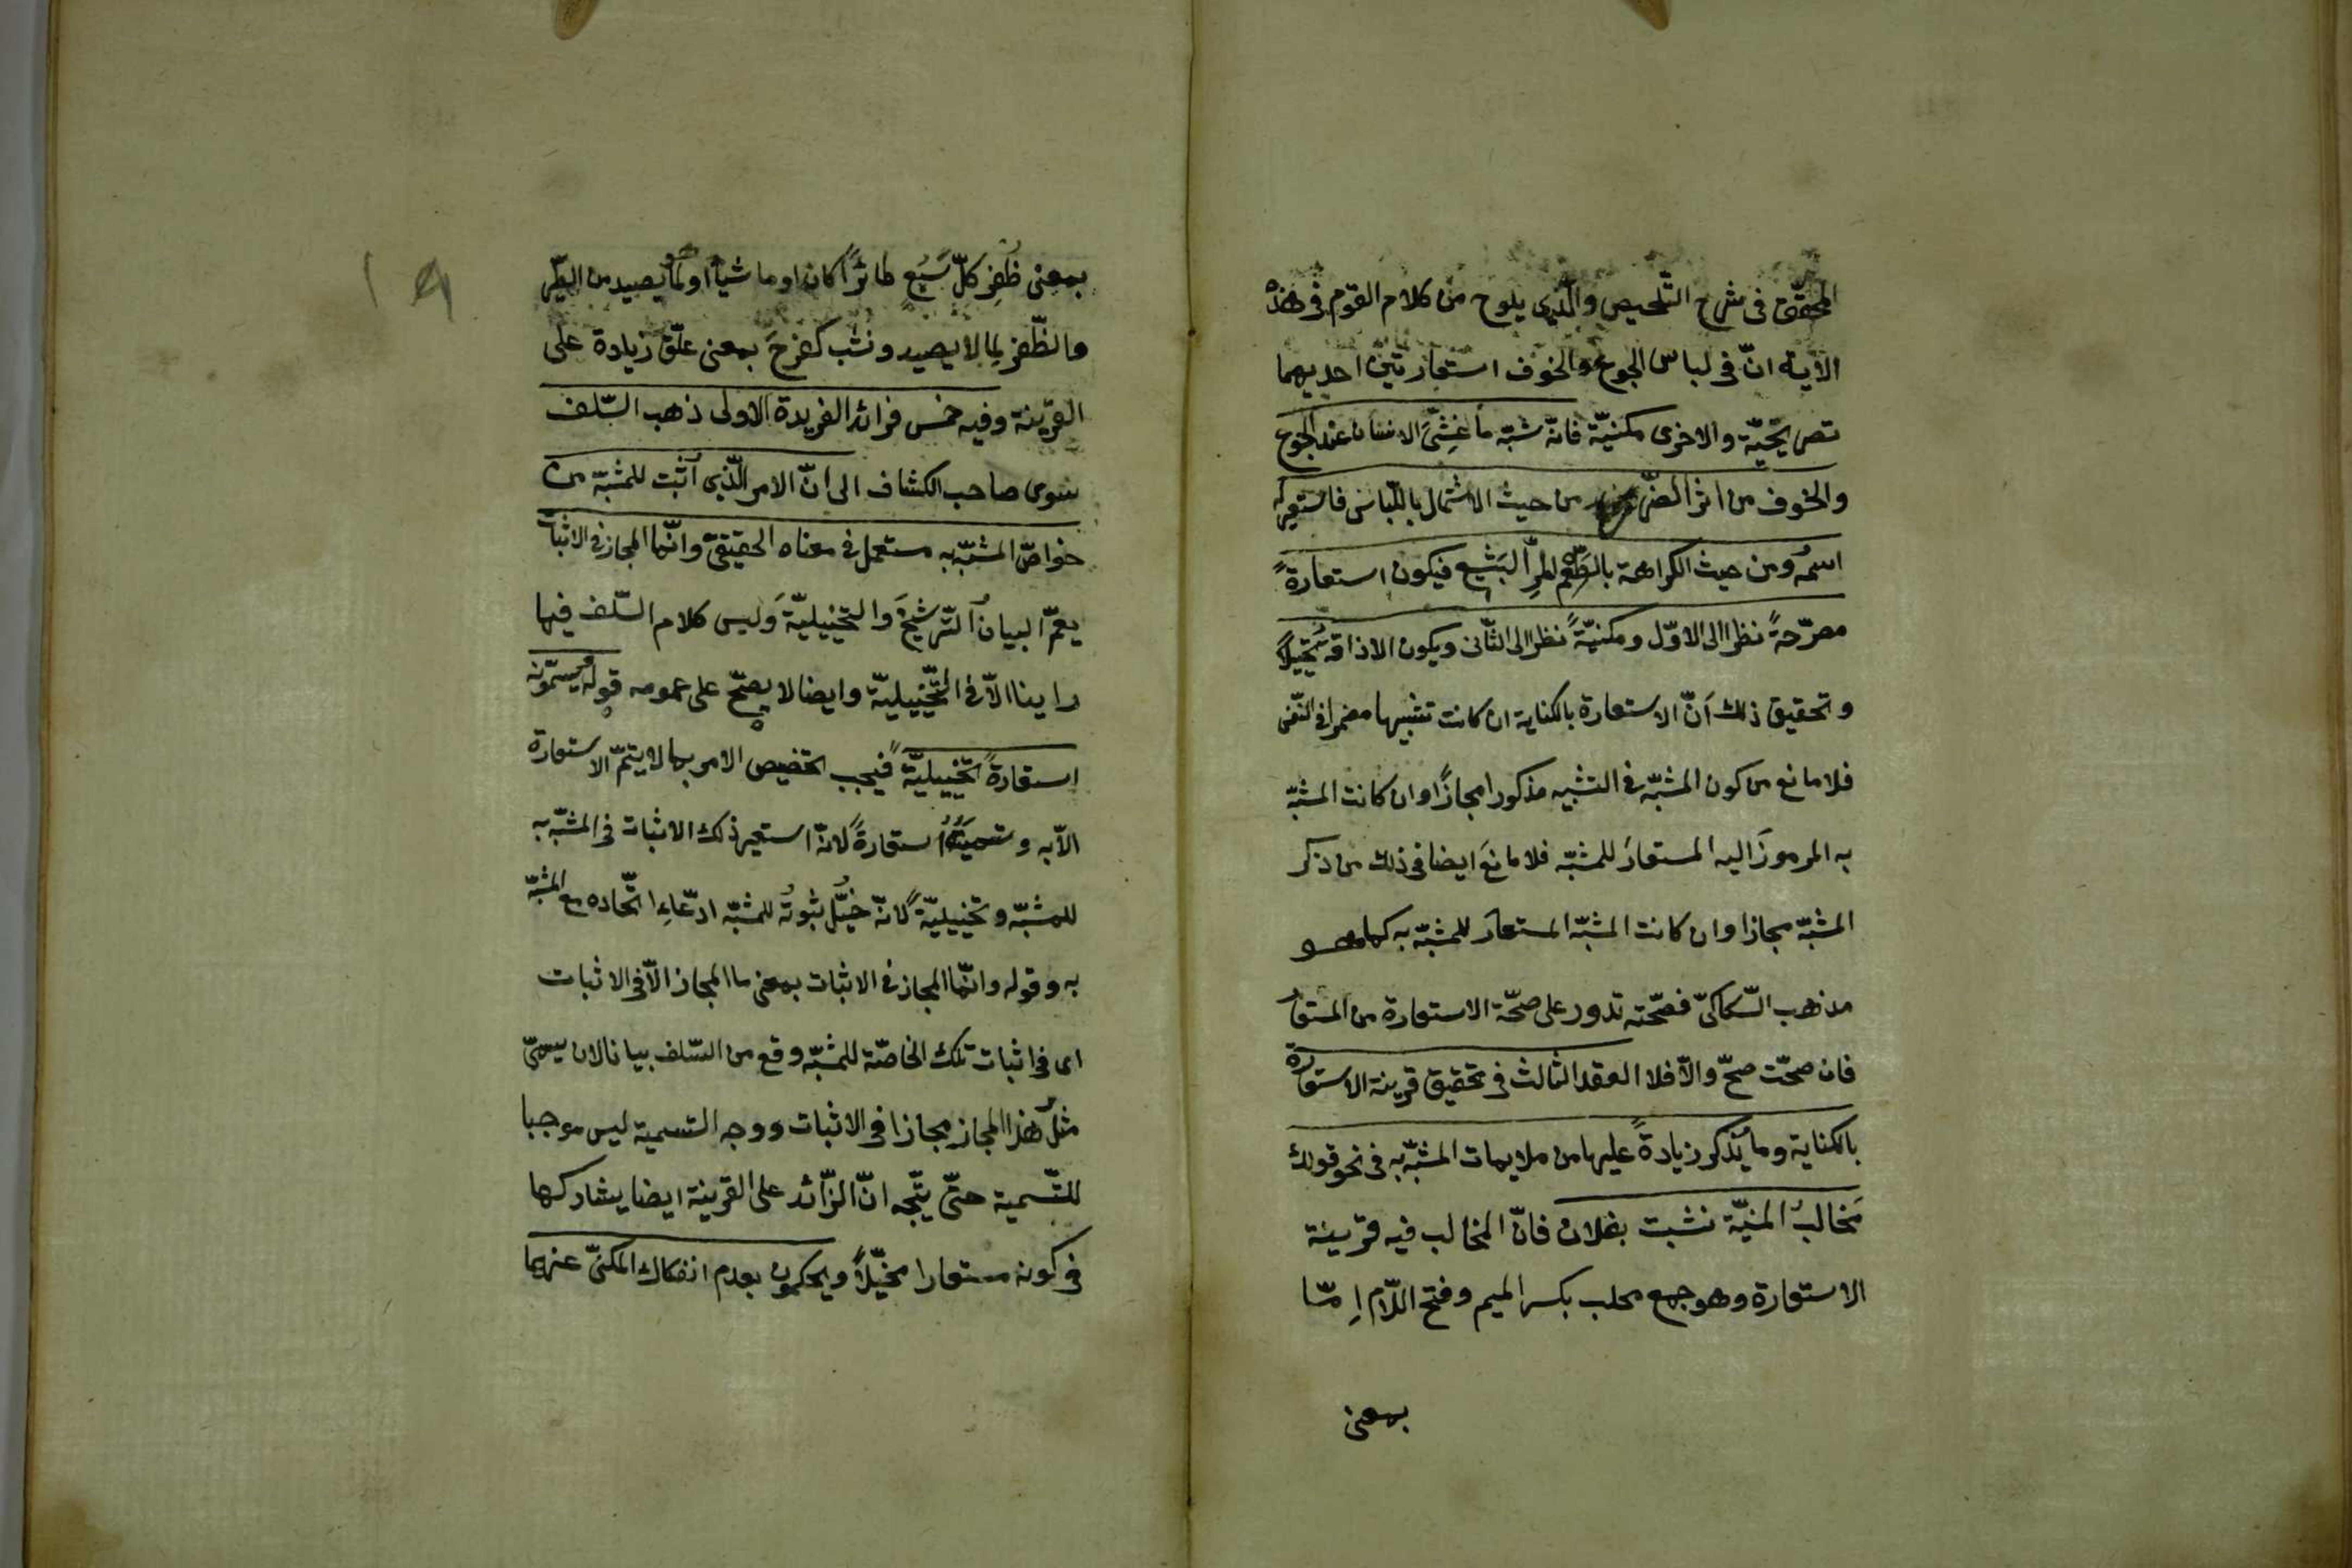 المحقّق فى شرح التّلخيص والّذى يلوح من كلام القوم فى هذه
الآية انّ فى لباس الجوع والخوف استعارتين احديهما
تصريحيّة والاخرى مكنيّة فانّه شبّه ما غشى الانسان عند الجوع
والخوف من اثر الضّرر من حيث الاشتمال باللّباس فاستعير له
اسمُه ومن حيث الكراهة بالطّعم المرّ البَشِيع فيكون استعارةً
مصرّحةً نظرا الى الاوّل ومكنيّةً نظرا الى الثّانى ويكون الاذاقة تخييلاً
وتحقيق ذلك انّ الاستعارة بالكناية ان كانت تشبيها مضمرا فى النّفس
فلا مانع من كون المشبّه فى التشبيه مذكورا مجازًا وان كانت المشبّه
به المرموزَ اليه المستعارَ للمشبّه فلا مانعَ ايضا فى ذلك من ذكر
المشبّه مجازا وان كانت المشبّه المستعارَ للمشبّه به كما هو
مذهب السّكاكىّ فصحّته تدور على صحّة الاستعارة من المستعار
فان صحّت صحّ والّا فلا العقد الثالث فى تحقيق قرينة الاستعارة
بالكناية وما يُذكر زيادةً عليها من ملايمات المشبّه به فى نحو قولك
مَخالبُ المنيّة نشبت بفلان فانّ المخالب فيه قرينة
الاستعارة وهو جمع مخلب بكسر الميم وفتح اللّام اِمّا
بمعنى
١٩
بمعنى ظُفِر كلّ سَبُع طائرًا كان او ماشياً او لما يصيد من الطّير
والظّفر لِما لا يصيد ونشب كفرحَ بمعنى علّق زيادة على
القرينة وفيه خمس فرائد الفريدة الاولى ذهب السّلف
سوى صاحب الكشّاف الى انّ الامر الّذى اُثبت للمشبّه من
خواصّ المشبّه به مستعمل فى معناه الحقيقىّ وانّما المجاز فى الاثبات
يعمّ البيانُ التّرشيحَ والتخييليّةَ وليس كلام السّلف فيها
راينا الّا فى التّخييليّة وايضا لا يصحّ على عمومه قوله ويسمّونه
استعارةً تخييليّةً فيجب تخصيص الامر بما لا يتمّ الاستعارة
الّا به وتسميتُه استعارةً لانّه استعير ذلك الاثبات فى المشبّه به
للمشبّه وتخييليّةً لانّه خُيّل ثبوتُه للمشبّه ادّعاءِ اتّحاده مع المشبّه
به وقوله وانّما المجاز فى الاثبات بمعنى ما المجاز الّا فى الاثبات
اى فى اثبات تلك الخاصّة للمشبّه وقع من السّلف بيانا لان يسمّى
مثلُ هذا المجاز مجازا فى الاثبات ووجه التسمية ليس موجبا
للتّسمية حتّى يتّجه انّ الزّائد على القرينة ايضا يشاركها
فى كونه مستعارا مخيّلاً ويحكمون بعدم انفكاك المكنىّ عنها